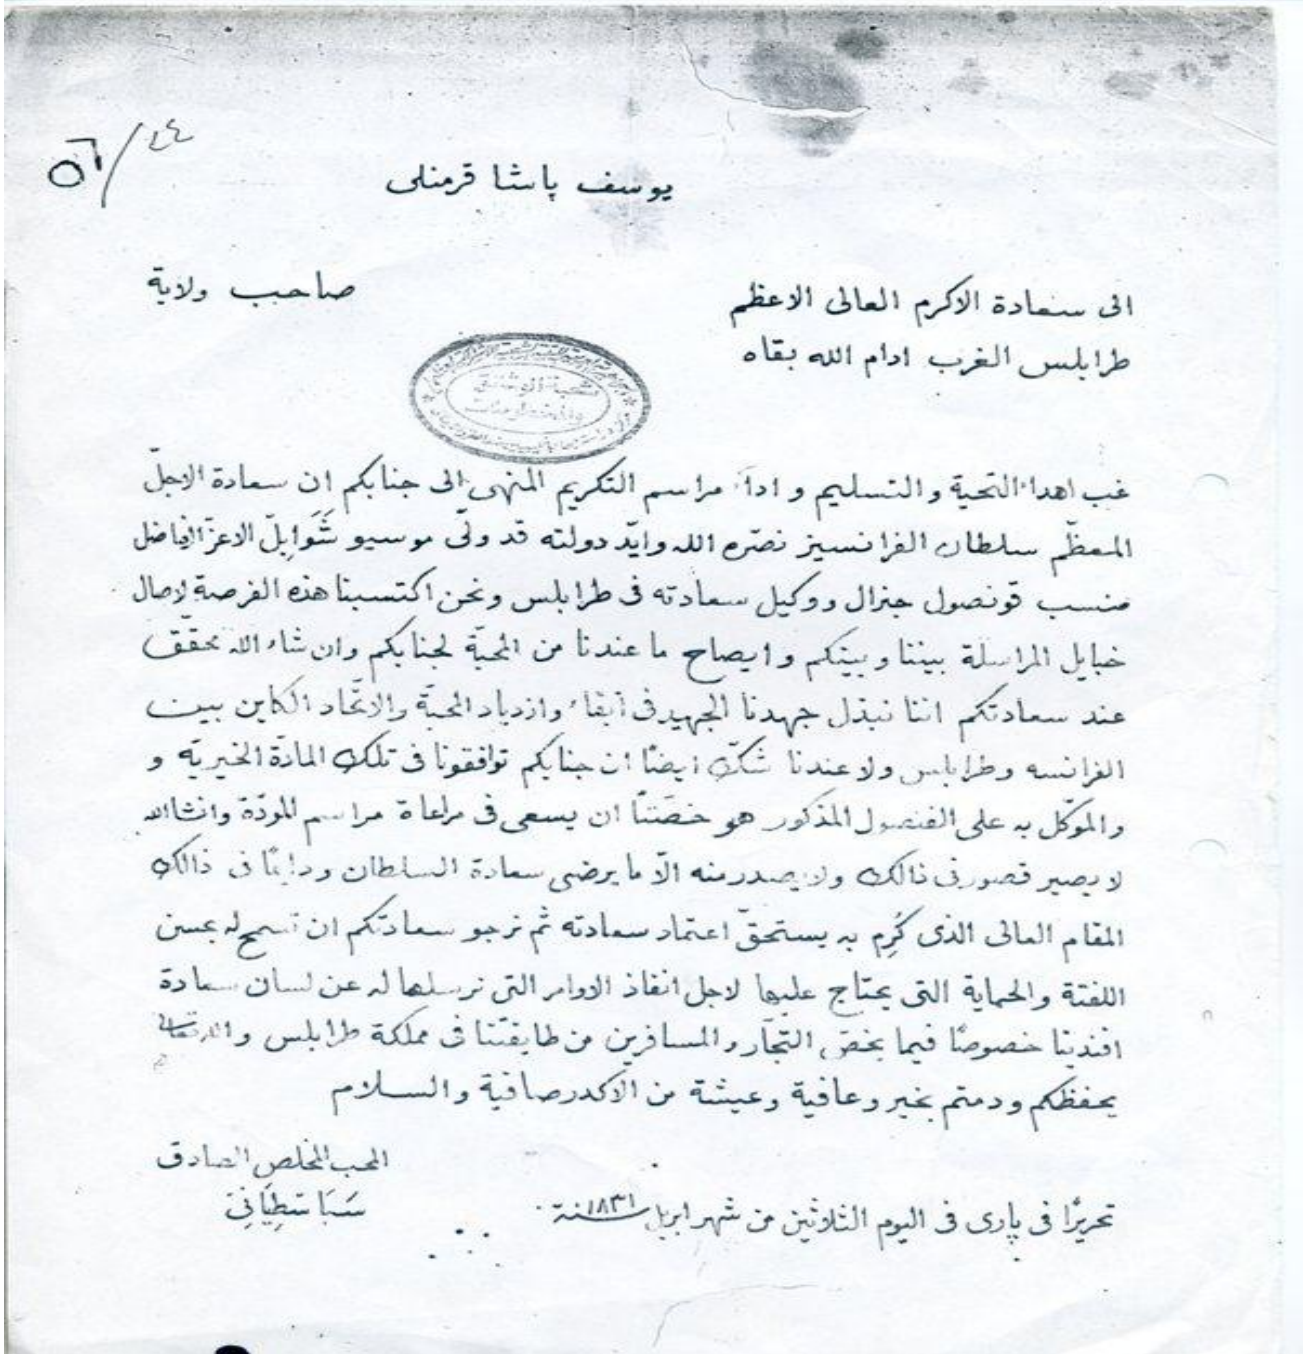 ٥٦/٤٤
يوسف پاشا قرمنلى
الى سعادة الاكرم العالى الاعظم صاحب ولاية
طرابلس الغرب ادام الله بقاه
شعبة الوثائق والمخطوطات
غب اهداء التحية والتسليم و اداء مراسم التكريم المنهى الى جنابكم ان سعادة الاجلّ
المعظّم سلطان الفرانسيز نصّره الله وايّد دولته قد ولّى موسيو شَوَابِلّ الاعزّ الفاضل
منسب قونصول جنرال ووكيل سعادته فى طرابلس ونحن اكتسبنا هذه الفرصة لاصال
خبايل المراسلة بيننا وبينكم وايصاح ما عندنا من المحبّة لجنابكم وان شاء الله محقّق
عند سعادتكم اننا نبذل جهدنا الجهيد فى ابقاء وازدياد المحبّة والاتّحاد الكاين بين
الفرانسه وطرابلس ولا عندنا شكّ ايضًا ان جنابكم توافقونا فى تلك المادّة الخيريّة و
والموكّل به على القنصول المذكور هو خصّتنا ان يسعى فى مراعاة مراسم المودّة وانشاالله
لا يصير قصور فى ذالك ولا يصدر منه الّا ما يرضى سعادة السلطان ودايمًا فى ذالك
المقام العالى الذى كُرِم به يستحقّ اعتماد سعادته ثم نرجو سعادتكم ان تسمح له بحسن
اللفتة والحماية التى يحتاج عليها لاجل انفاذ الاوامر التى نرسلها له عن لسان سعادة
افندينا خصوصًا فيما يخصّ التجّار والمسافرين من طايفتنا فى مملكة طرابلس والله تعالى
يحفظكم ودمتم بخير وعافية وعيشة من الاكدر صافية والسلام
المحب المخلص الصادق
سَبَاسْطِيَانِى
تحريرًا فى پارى فى اليوم الثلاثين من شهر ابريل سنة ١٨٣١